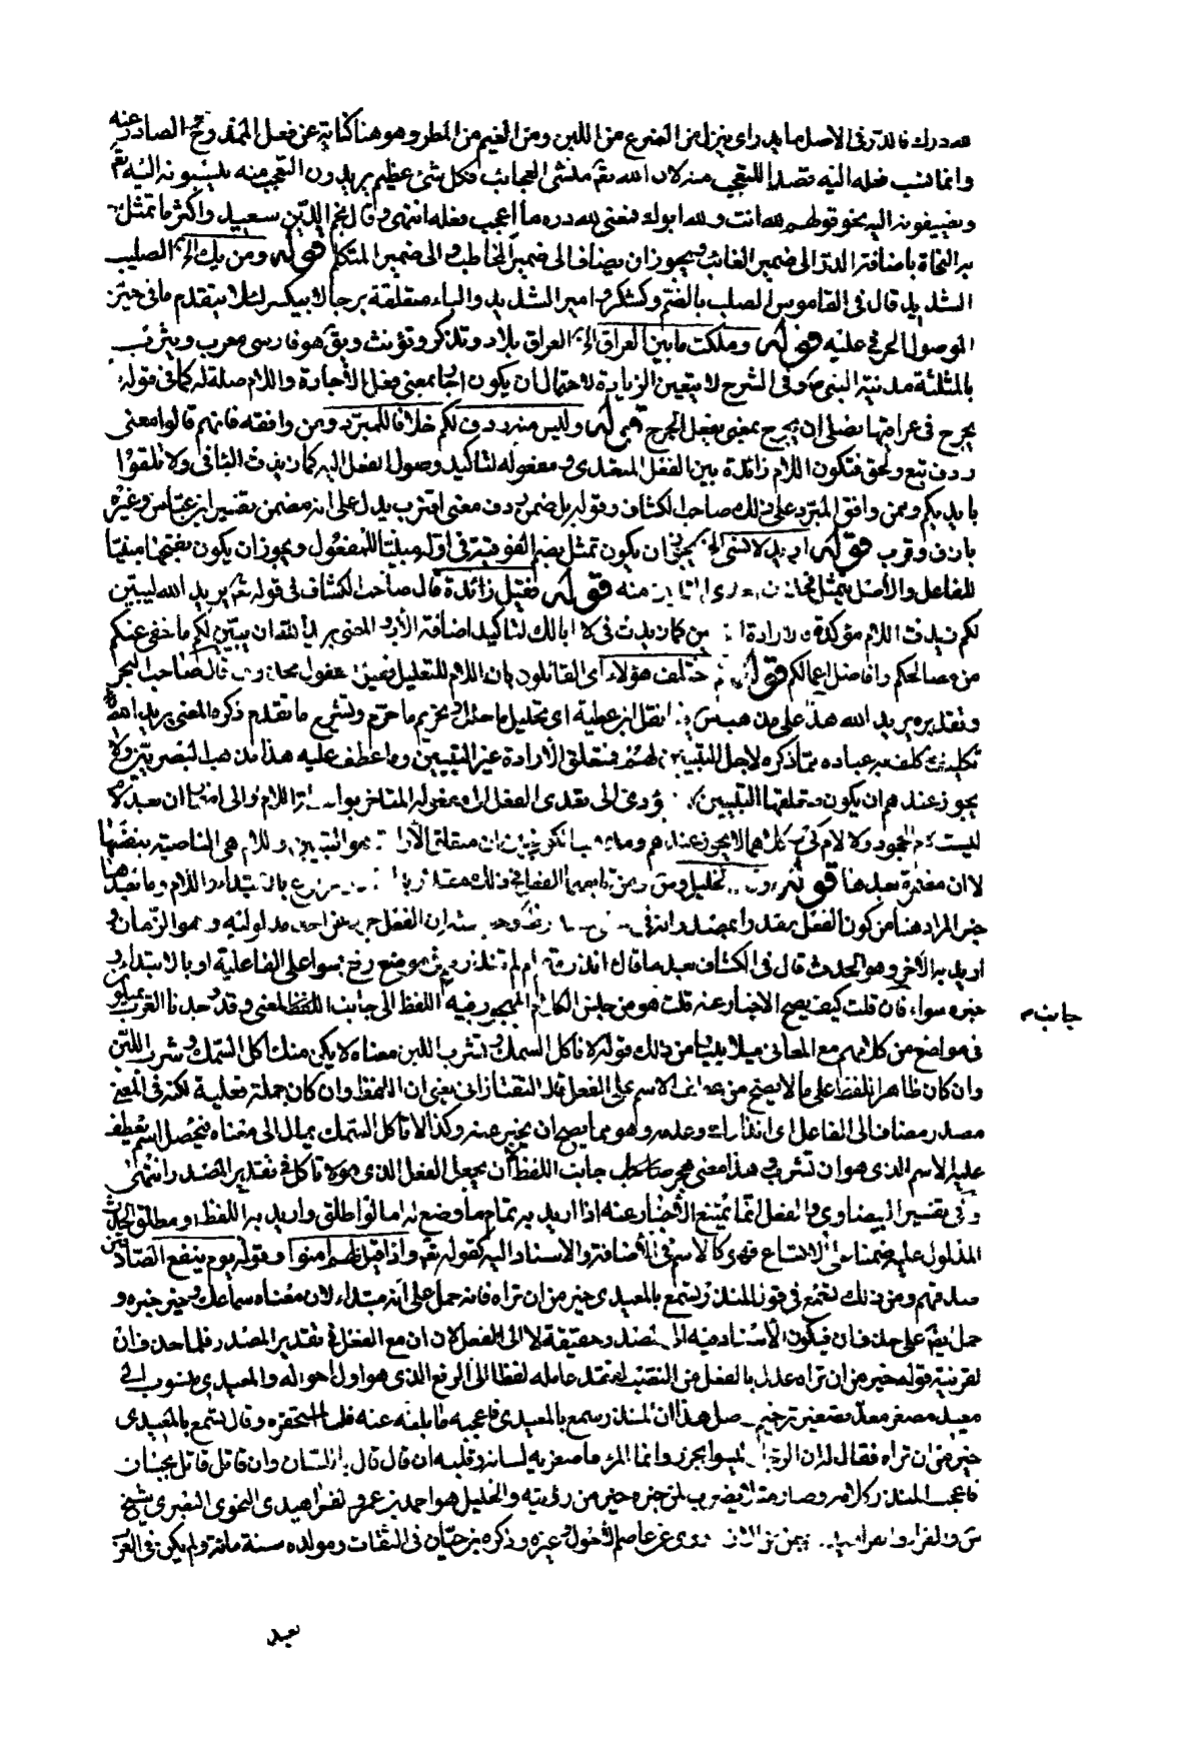 لله درك فالدر في الاصل ما يدر اي ينزل من الضرع من اللبن ومن الغيم من المطر وهو هنا كناية عن فعل الممدوح الصادر عنه
وانما نسب فعله اليه قصدا للتعجب منه لان الله تعم منشئ العجايب فكل شئ عظيم يريدون التعجب منه ينسبونه اليه تعم
ويضيفونه اليه نحو قولهم لله انت ولله ابوك فمعنى لله دره ما اعجب فعله انتهى وقال نجم الدين سعيد واكثر ما تمثل
به النحاة باضافة الدر الى ضمير الغائب ويجوز ان يضاف الى ضمير المخاطب والى ضمير المتكلم قوله ومن يك الخ الصليب
الشديد قال في القاموس الصلب بالضم وكسكر وامير الشديد والباء متعلقة برجا لا بيكسر لئلا يتقدم ما في حيز
الموصول الحرفي عليه قوله وملكت ما بين العراق الخ العراق بلاد وتذكر وتؤنث ويق هو فارسي معرب ويثرب
بالمثلثة مدينة النبي وفي الشرح لا يتعين الزيادة لاحتمال ان يكون اجار بمعنى فعل الاجارة واللام صلة له كما في قوله
يجرح في عراقيبها نصلي ان يجرح بمعنى يفعل الجرح قوله وليس منه ردف لكم خلافا للمبرد ومن وافقه فانهم قالوا معنى
ردف تبع ولحق فتكون اللام زائدة بين الفعل المتعدي ومفعوله لتاكيد وصول الفعل اليه كما زيدت الباء في ولا تلقوا
بايديكم وممن وافق المبرد على ذلك صاحب الكشاف وقوله بل ضمن ردف معنى اقترب يدل على انه مضمن تفسير ابن عباس وغيره
بازف وقرب قوله اريد لانسى الخ يجوز ان يكون تمثل بضم الفوقية في اوله مبنيا للمفعول ويجوز ان يكون بفتحها مبنيا
للفاعل والاصل تتمثل فحذفت احدى التائين منه قوله فقيل زائدة قال صاحب الكشاف في قوله تعم يريد الله ليبين
لكم زيدت اللام مؤكدة لارادة التبيين كما زيدت في لا ابا لك لتاكيد اضافة الاب والمعنى يريد الله ان يبين لكم ما خفي عنكم
من مصالحكم وافاضل اعمالكم قوله ثم اختلف هؤلاء اى القائلون بان اللام للتعليل فقيل المفعول محذوف قال صاحب البحر
وتقديره يريد الله هذا على مذهب سيبويه نقل ابن عطية اى تحليل ما حلل وتحريم ما حرم وتشريع ما تقدم ذكره المعنى يريد الله
تكليف ما كلف به عباده مما ذكره لاجل التبيين لهم فمتعلق الارادة غير التبيين وما عطف عليه هذا مذهب البصريين ولا
يجوز عندهم ان يكون متعلقها التبيين يؤدى الى تعدى الفعل الى مفعوله المتاخر بواسطة اللام والى اضمار ان بعد لام
ليست لام الجحود ولا لام كي وكلاهما لا يجوز عندهم ومذهب الكوفيين ان متعلق الارادة هو التبيين واللام هى الناصبة بنفسها
لا ان مضمرة بعدها قوله الخليل وسيبويه ومن تابعهما الفعل في ذلك مقدر مرفوع بالابتداء واللام وما بعدها
خبر المراد هنا من كون الفعل مقدرا بمصدر انه ان الفعل جرد عن احد مدلوليه وهو الزمان و
اريد به الآخر وهو الحدث قال في الكشاف بعد ما قال انذرتهم ام لم تنذرهم في موضع رفع بسواء على الفاعلية او بالابتداء و
خبره سواء فان قلت كيف يصح الاخبار عنه قلت هو من جنس الكلام المهجور فيه اللفظ الى جانب المعنى وقد وجدنا العرب يميلون
في مواضع من كلامهم مع المعاني ميلا بينا من ذلك قولهم لا تاكل السمك وتشرب اللبن معناه لا يكن منك اكل السمك وشرب اللبن
وان كان ظاهر اللفظ على ما لا يصح من عطف الاسم على الفعل قال التفتازانى يعنى ان اللفظ وان كان جملة فعلية لكنه في المعنى
مصدر مضاف الى الفاعل اى انذارك وعدمه وهو مما يصح ان يخبر عنه وكذا لا تاكل السمك يمال الى معناه فيحصل اسم يعطف
عليه الاسم الذى هو ان تشرب وهذا معنى هجر جانب اللفظ ان يجعل الفعل الذى هو لا تاكل في تقدير المصدر انتهى
وفي تفسير البيضاوى والفعل انما يمتنع الاخبار عنه اذا اريد به تمام ما وضع له اما لو اطلق واريد به اللفظ او مطلق الحدث
المدلول عليه ضمنا على الاتساع فهو كالاسم في الاضافة والاسناد اليه كقوله تعم واذا قيل لهم امنوا وقوله يوم ينفع الصادقين
صدقهم ومن ذلك تسمع في قول المنذر تسمع بالمعيدى خير من ان تراه فانه حمل على انه مبتداء لان معناه سماعك وخير خبره و
حمل بعضهم على حذف ان فيكون الاسناد فيه الى المصدر حقيقة لا الى الفعل لان ان مع الفعل في تقدير المصدر فلما حذف ان
لقرينة قوله خير من ان تراه عدل بالفعل من النصب لفقد عامله لفظا الى الرفع الذى هو اول احواله والمعيدى منسوب الى
معيد مصغر معد تصغير ترخيم اصل هذا ان المنذر سمع بالمعيدى فاعجبه ما بلغه عنه فلما استحقره وقال تسمع بالمعيدى
خير من ان تراه فقال له ان الرجال ليسوا بجزر وانما المرء باصغريه لسانه وقلبه ان قال قال بلسان وان قاتل قاتل بجنان
فاعجب المنذر كلامه وصار مثلا يضرب لمن خبره خير من رؤيته والخليل هو احمد بن عمرو الفراهيدى النحوى البصرى شيخ
روى عن عاصم الاحول وغيره وذكره ابن حبان في الثقات ومولده سنة مائة ولم يكن في العرب
بعد
جانب